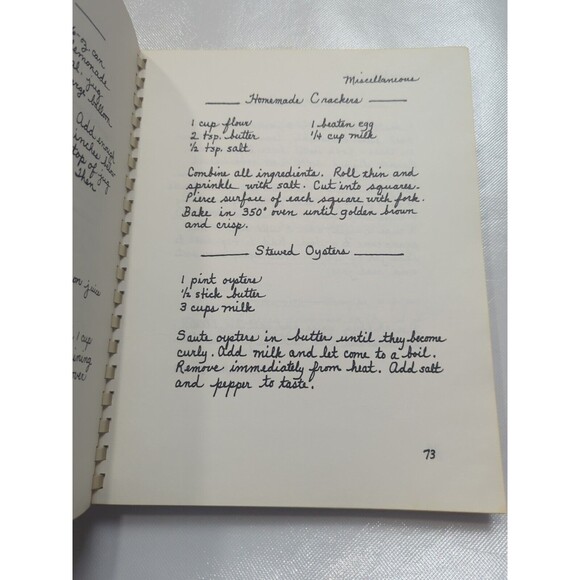 6-oz can
lemonade
jug
Add enough
inches below
top of jug
then
juice
1 cup
over
Miscellaneous
Homemade Crackers
1 cup flour 1 beaten egg
2 tsp. butter 1/4 cup milk
1/2 tsp. salt
Combine all ingredients. Roll thin and
sprinkle with salt. Cut into squares.
Pierce surface of each square with fork.
Bake in 350° oven until golden brown
and crisp.
Stewed Oysters
1 pint oysters
1/2 stick butter
3 cups milk
Saute oysters in butter until they become
curly. Add milk and let come to a boil.
Remove immediately from heat. Add salt
and pepper to taste.
73